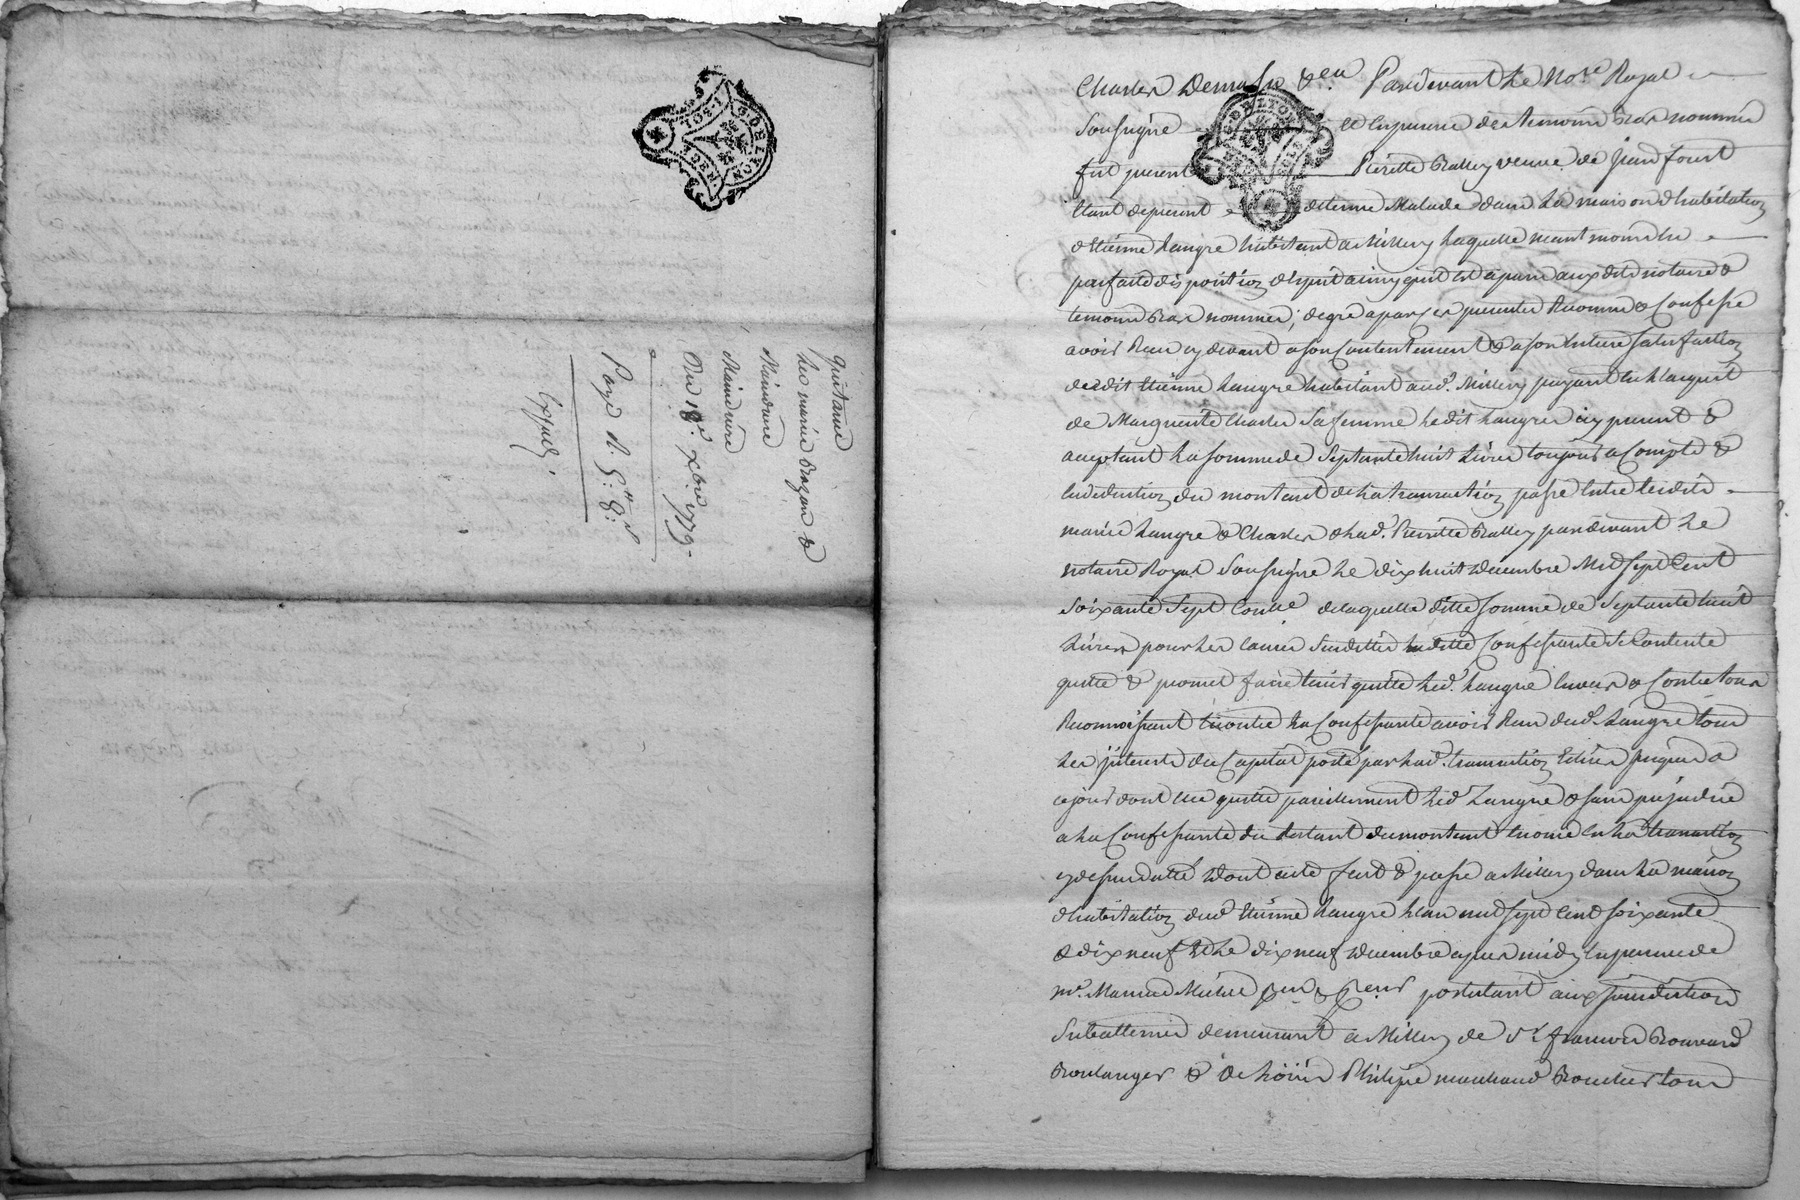 quitance
les mariés Dragon &
Maindure
Mandrière
Du 18e. xbre. 1779.
Payé
Expédié.
G. DE LYON
Pardevant Le No.re Royal
Soussigné & En presence des temoins Bas nommés
fut presente Pierrette Balley veuve de jean foust
Etant de present detenue Malade dans La maison d'habitation
d'Etienne Langre habitant a Millery Laquelle neantmoins en
parfaite disposition d'esprit ainsy quil Est aparu auxdits notaire &
temoins Bas nommés; de gré a par ses presentes Reconnu & Confessé
avoir Reçu cy devant a son Contentement & a son Entiere satisfaction
dudit Etienne Langre habitant aud. Millery payant En L'acquit
de Marguerite Charles Sa femme Ledit Langre icy present &
acceptant La somme de Septante huit Livres toujours a Compte &
En deduction du montant de La transaction passé Entre lesdits
mariés Langre & Charles & Lad. Pierrette Balley pardevant Le
notaire Royal Soussigné Le dix huit decembre Mil Sept Cent
Soixante Sept Conllé de laquelle ditte somme de Septante huit
Livres pour Les causes Susdittes Laditte Confessante Se Contente
quitte & promet faire tenir quitte Led. Langre Envers & Contre tous
Reconnoissant En outre La Confessante avoir Reçu dud. Langre tous
Les jnterests du Capital porté par Lad. transaction Echus jusques a
ce jour dont Elle quitte pareillement Led. Langre & sans prejudice
a La Confessante du Restant du montant Enoncé En La transaction
cy dessus dattée Dont acte fait & passé a Millery dans La maison
d'habitation dud. Etienne Langre L'an mil sept Cent soixante
& dix neuf & Le dix neuf decembre apres midy En presence de
Me. postulant aux jurisdictions
Subalternes demeurant a Millery de Sr. francois Bouvard
Boulanger & de Loüis Philipe marchand Boucher tous